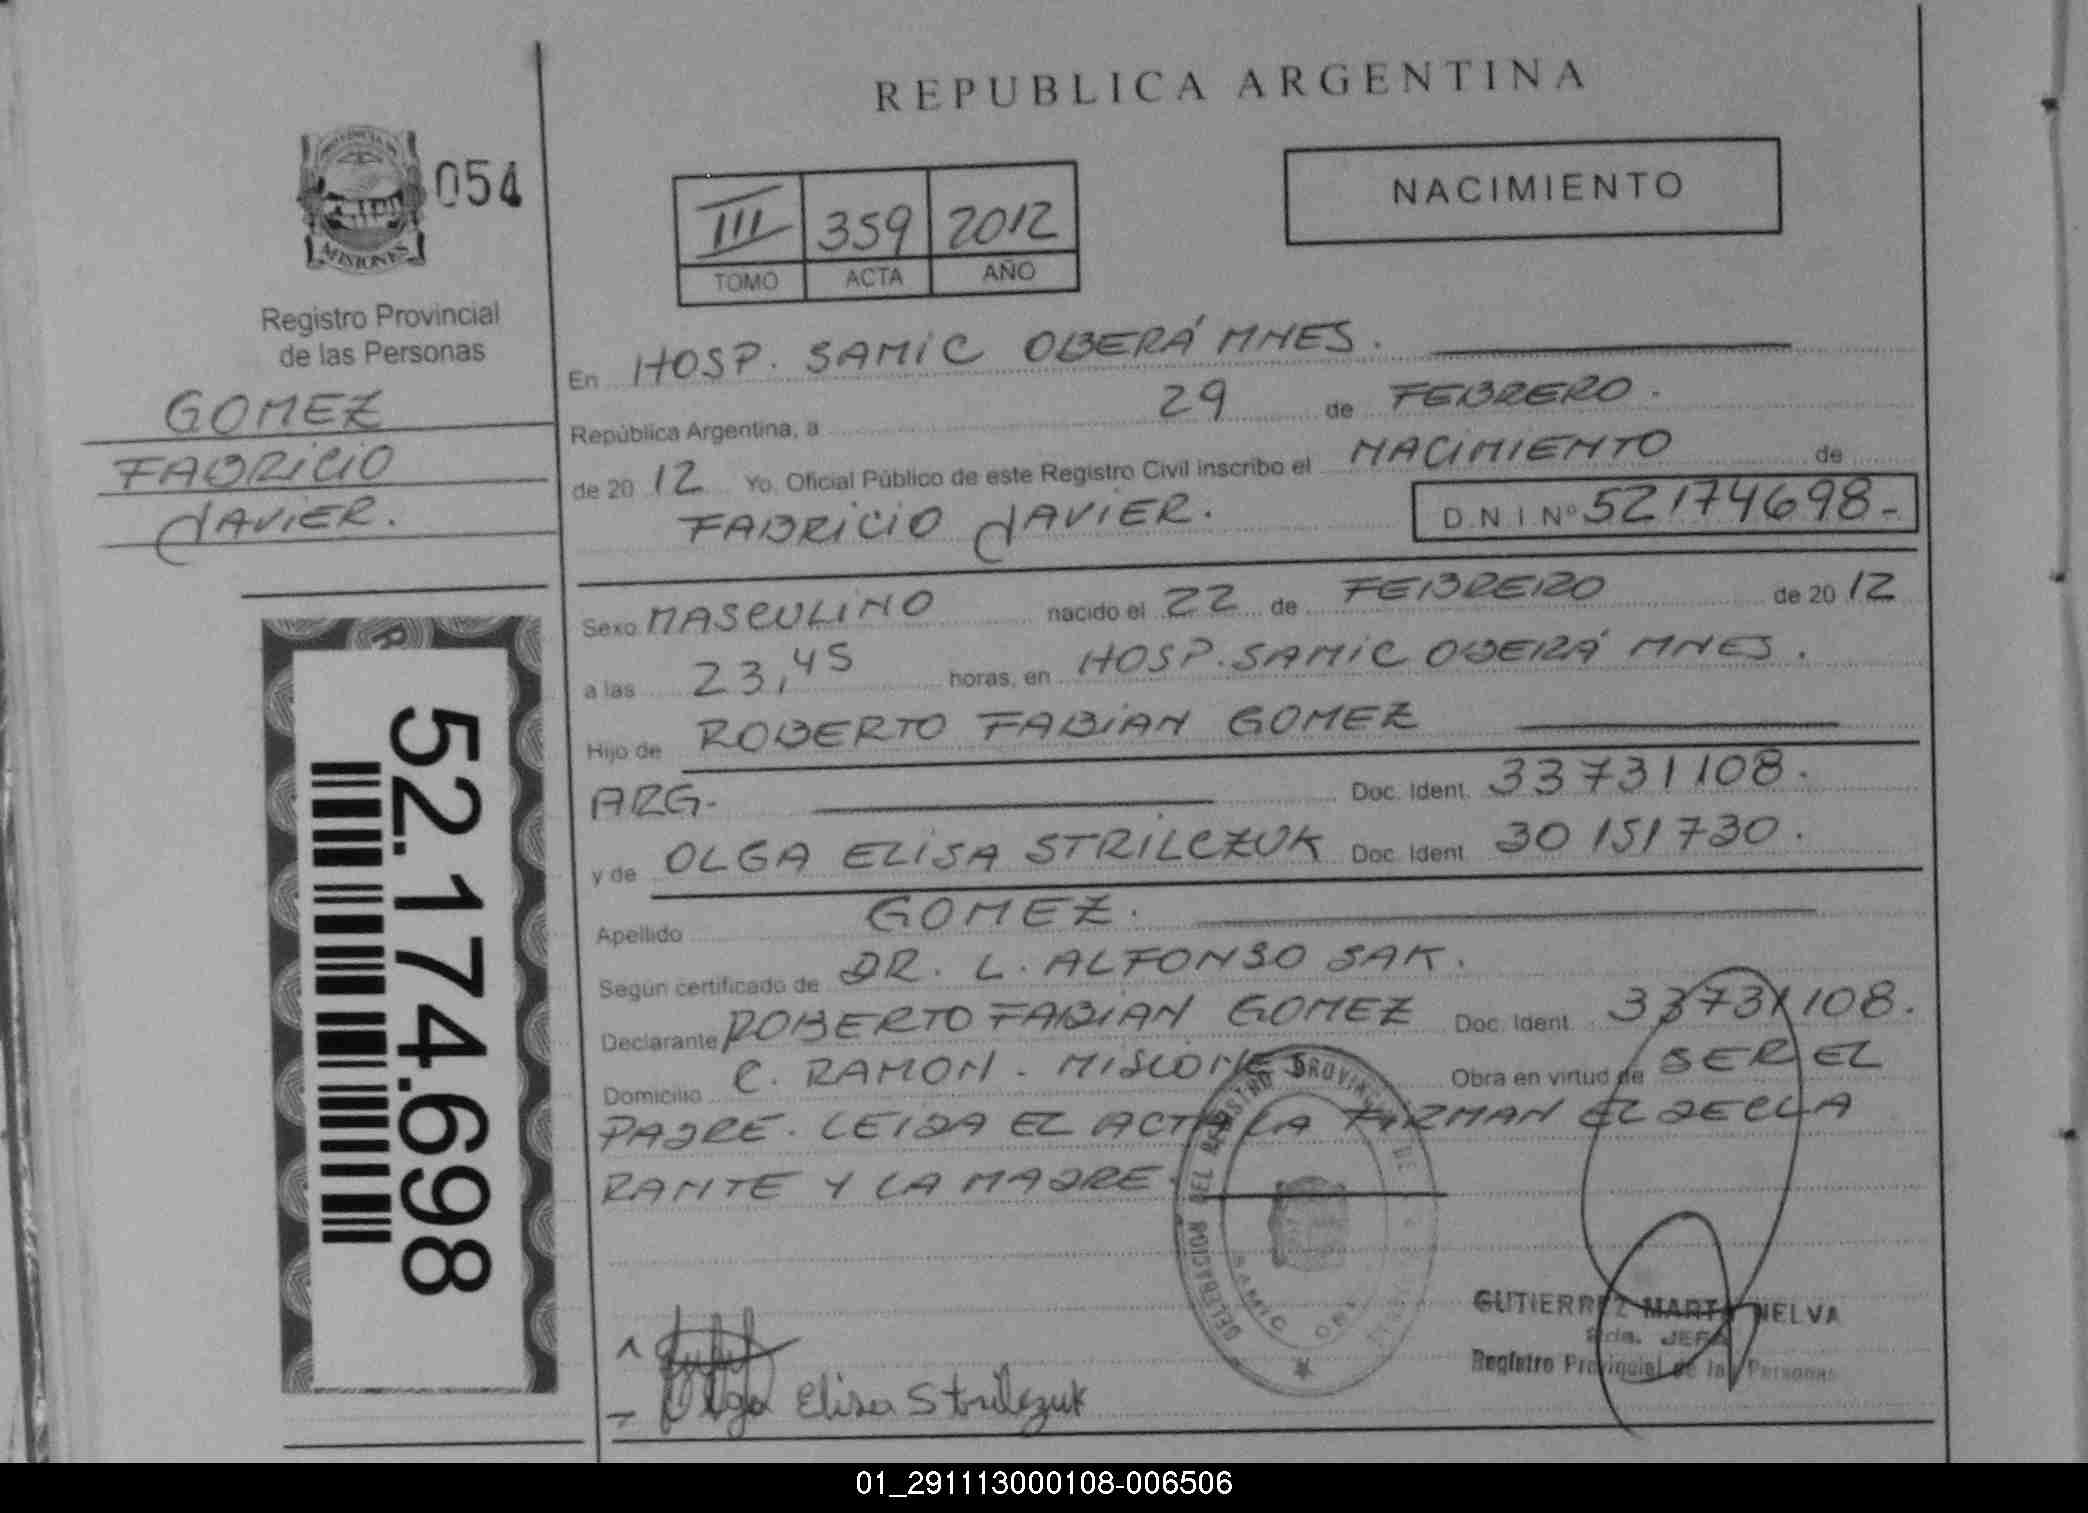 REPUBLICA ARGENTINA
054
MISIONES
NACIMIENTO
III 359 2012
TOMO ACTA AÑO
Registro Provincial
de las Personas
GOMEZ
FABRICIO
JAVIER.
En HOSP. SAMIC OBERÁ MNES.
República Argentina, a 29 de FEBRERO.
de 20 12 Yo, Oficial Público de este Registro Civil inscribo el NACIMIENTO de
FABRICIO JAVIER. D.N.I.Nº 52174698-
Sexo MASCULINO nacido el 22 de FEBRERO de 20 12
a las 23,45 horas, en HOSP. SAMIC OBERÁ MNES.
Hijo de ROBERTO FABIAN GOMEZ
ARG- Doc. Ident. 33731108.
y de OLGA ELISA STRILCZUK Doc. Ident. 30151730.
Apellido GOMEZ.
Según certificado de DR. L. ALFONSO SAK.
Declarante ROBERTO FABIAN GOMEZ Doc. Ident. 33731108.
Domicilio C. RAMON. MISIONES Obra en virtud de SER EL
PADRE. LEIDA EL ACTA LA FIRMAN EL DECLA
RANTE Y LA MADRE.
52.174.698
DELEGACION DEL REGISTRO PROVINCIAL DE
SAMIC
GUTIERREZ MARTA NELVA
JEFA
Registro Provincial de las Personas
Olga Elisa Strilczuk
01_291113000108-006506